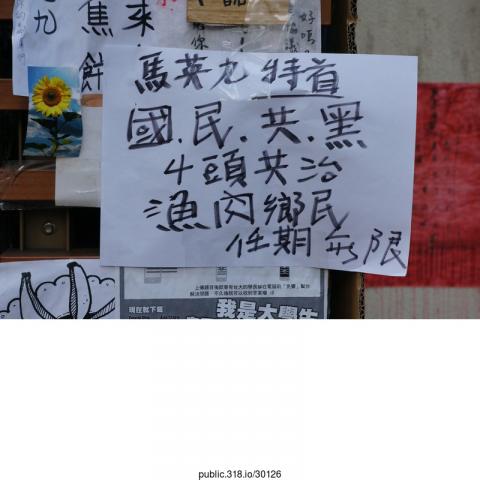 九 焦 來
餅
馬英九 特首
國.民.共.黑
4頭共治
漁肉鄉民
任期無限
現在就下載
我是大學生
public.318.io/30126